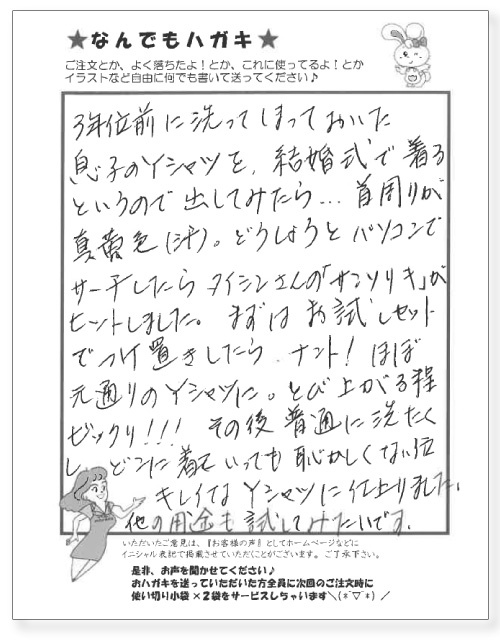 ★なんでもハガキ★
ご注文とか、よく落ちたよ！とか、これに使ってるよ！とか
イラストなど自由に何でも書いて送ってください♪
3年位前に洗ってしまっておいた
息子のYシャツを、結婚式で着る
というので出してみたら…首周りが
真黄色(汗)。どうしようとパソコンで
サーチしたらタイシンさんの「サンソリキ」が
ヒットしました。まずはお試しセット
でつけ置きしたら、ナント！ほぼ
元通りのYシャツに。とび上がる程
ビックリ！！！その後普通に洗たく
し、どこに着ていっても恥かしくない位
キレイなYシャツに仕上りました。
他の用途も試してみたいです。
いただいたご意見は、『お客様の声』としてホームページなどに
イニシャル表記で掲載させていただくことがございます。ご了承下さい。
是非、お声を聞かせてください♪
おハガキを送っていただいた方全員に次回のご注文時に
使い切り小袋×2袋をサービスしちゃいます＼(*´▽`*)／